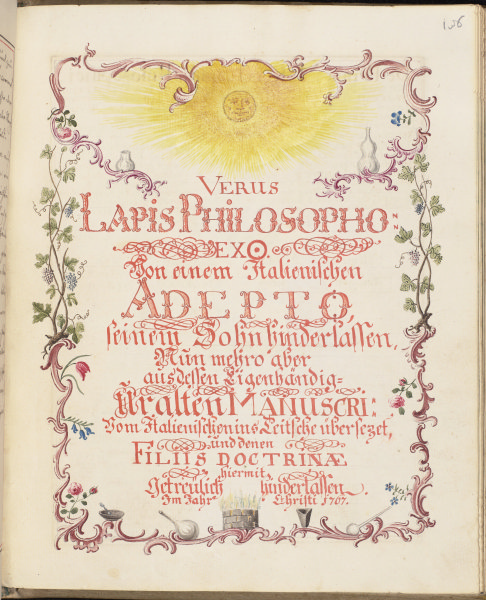 106
VERUS
LAPIS PHILOSOPHO-
EX ☉.
Von einem Italienischen
ADEPTO,
seinem Sohn hinderlassen,
Nun mehro aber
aus dessen Eigenhändig=
Uralten MANUSCRI:
Vom Italienischen ins Teitsche übersezet,
und denen
FILIIS DOCTRINÆ
hiermit
Getreülich hinderlassen.
Im Jahr Christi 1767.